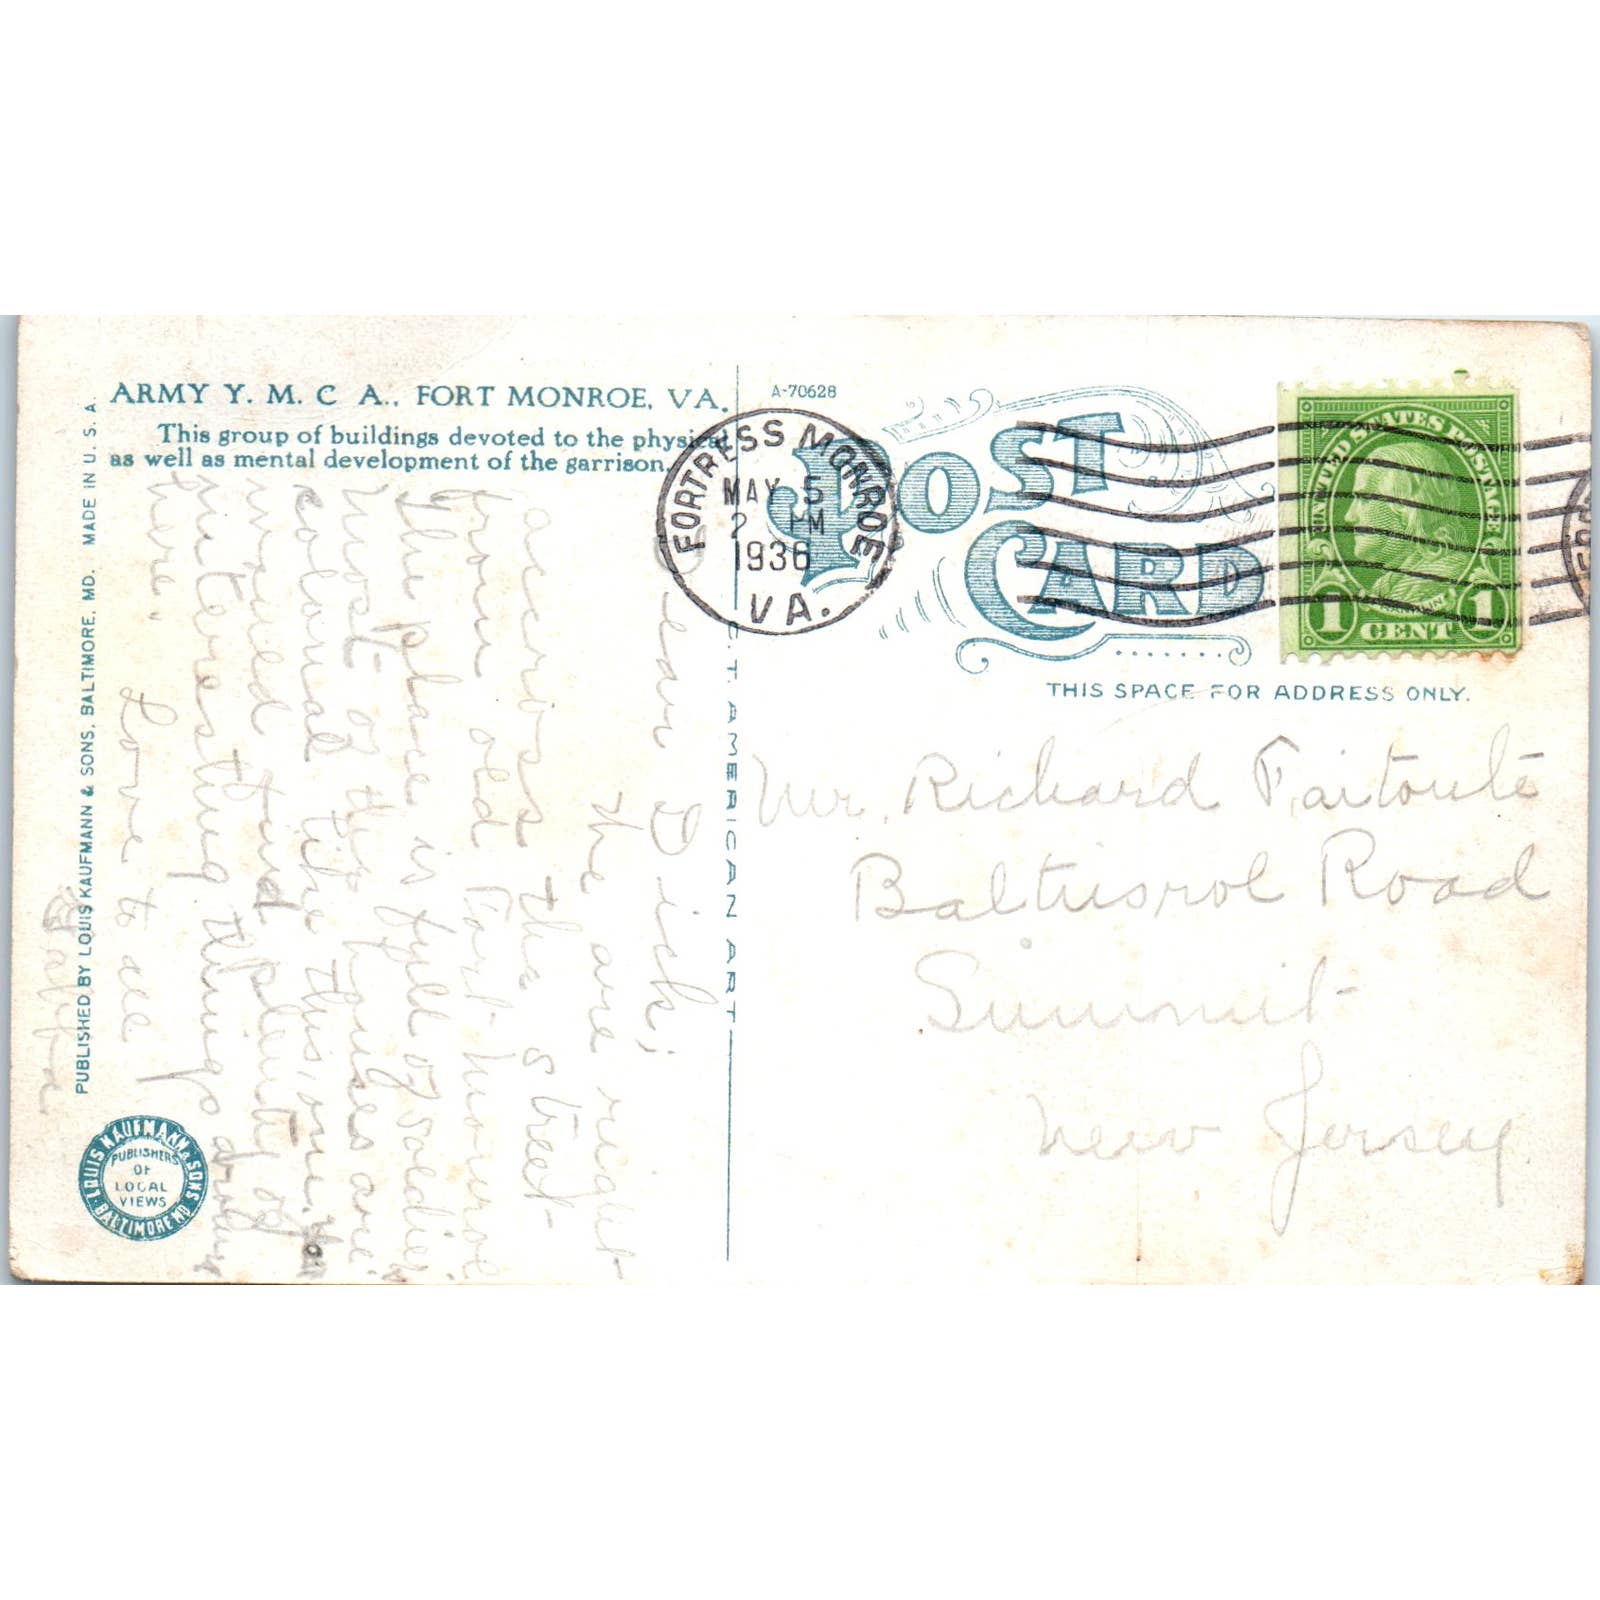 ARMY Y. M. C A., FORT MONROE, VA.
This group of buildings devoted to the physical
as well as mental development of the garrison.
PUBLISHED BY LOUIS KAUFMANN & SONS, BALTIMORE, MD. MADE IN U. S. A.
LOUIS KAUFMANN & SONS
PUBLISHERS
OF
LOCAL
VIEWS
BALTIMORE MD
Dear Dick;
The are right
accross the street
from old Fort Monroe
The place is full of soldiers
Most of the houses are
colonial like this one.
would find plenty of
interesting things around
here.
Love to all
C. T. AMERICAN ART
A-70628
POST
CARD
FORTRESS MONROE
MAY 5
2 PM
1936
VA.
UNITED STATES POSTAGE
1 CENT 1
THIS SPACE FOR ADDRESS ONLY.
Mr. Richard Faitoute
Baltusrol Road
Summit
New Jersey